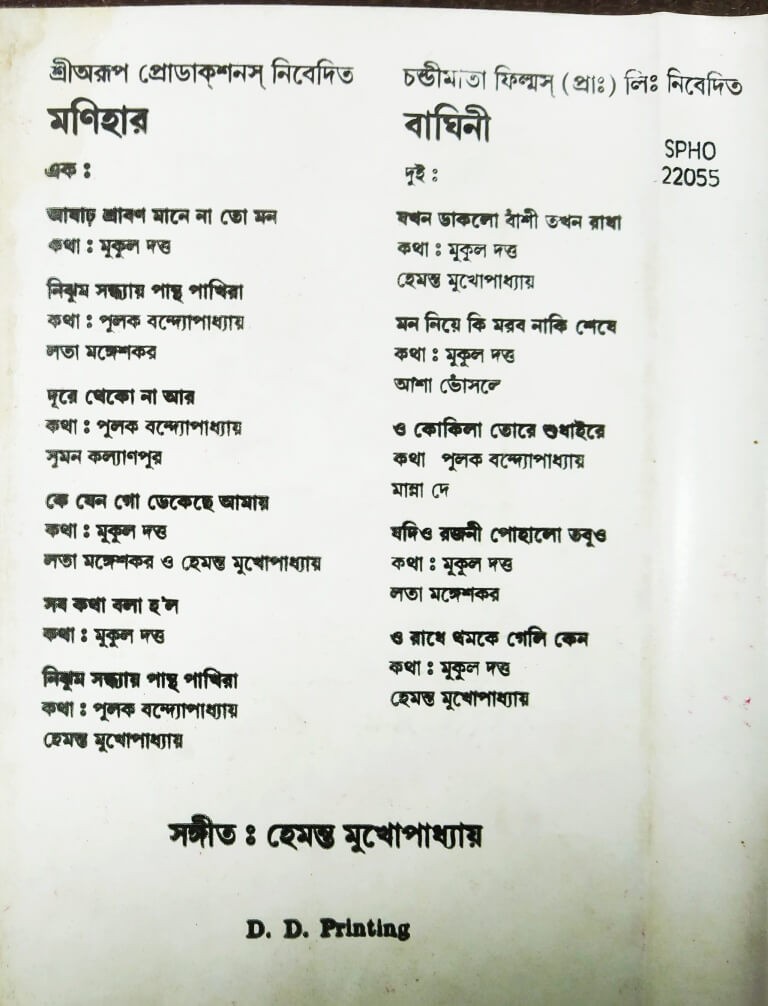 শ্রীঅরূপ প্রোডাক্‌শনস্ নিবেদিত
মণিহার
এক :
আষাঢ় শ্রাবণ মানে না তো মন
কথা : মুকুল দত্ত
নিঝুম সন্ধ্যায় পান্থ পাখিরা
কথা : পুলক বন্দ্যোপাধ্যায়
লতা মঙ্গেশকর
দূরে থেকো না আর
কথা : পুলক বন্দ্যোপাধ্যায়
সুমন কল্যাণপুর
কে যেন গো ডেকেছে আমায়
কথা : মুকুল দত্ত
লতা মঙ্গেশকর ও হেমন্ত মুখোপাধ্যায়
সব কথা বলা হ'ল
কথা : মুকুল দত্ত
নিঝুম সন্ধ্যায় পান্থ পাখিরা
কথা : পুলক বন্দ্যোপাধ্যায়
হেমন্ত মুখোপাধ্যায়
চন্ডীমাতা ফিল্মস্ (প্রাঃ) লিঃ নিবেদিত
বাঘিনী
দুই :
যখন ডাকলো বাঁশী তখন রাধা
কথা : মুকুল দত্ত
হেমন্ত মুখোপাধ্যায়
মন নিয়ে কি মরব নাকি শেষে
কথা : মুকুল দত্ত
আশা ভোঁসলে
ও কোকিলা তোরে শুধাইরে
কথা পুলক বন্দ্যোপাধ্যায়
মান্না দে
যদিও রজনী পোহালো তবুও
কথা : মুকুল দত্ত
লতা মঙ্গেশকর
ও রাধে থমকে গেলি কেন
কথা : মুকুল দত্ত
হেমন্ত মুখোপাধ্যায়
SPHO
22055
সঙ্গীত : হেমন্ত মুখোপাধ্যায়
D. D. Printing